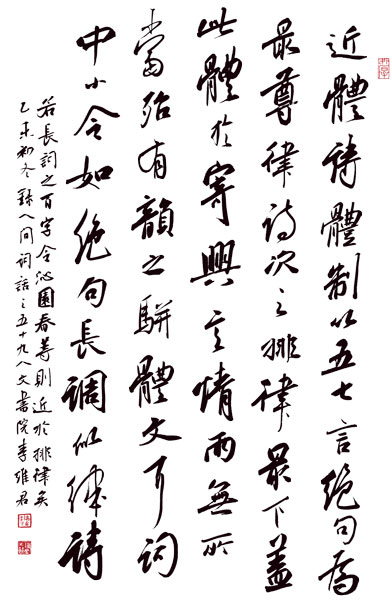 近體詩體制以五七言絕句為
最尊律詩次之排律最下蓋
此體於寄興言情兩無所
當殆有韻之駢體文耳詞
中小令如絕句長調似律詩
若長詞之百字令沁園春等則近於排律矣
乙未初冬錄人間詞話之五十九八文書院李維君